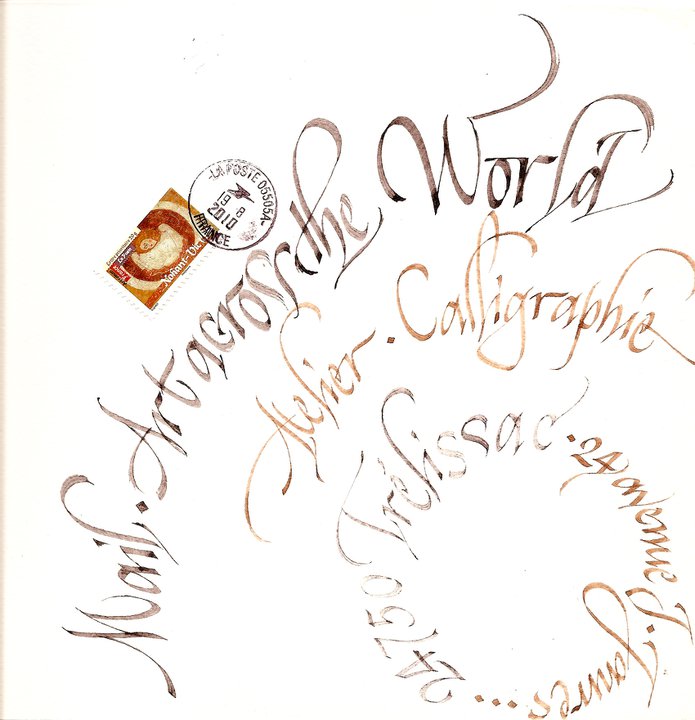 Mail. Art across the World
Atelier. Calligraphie
24750 Trélissac. 24 avenue J. Jaures...
LA POSTE 05505A
19-8
2010
FRANCE